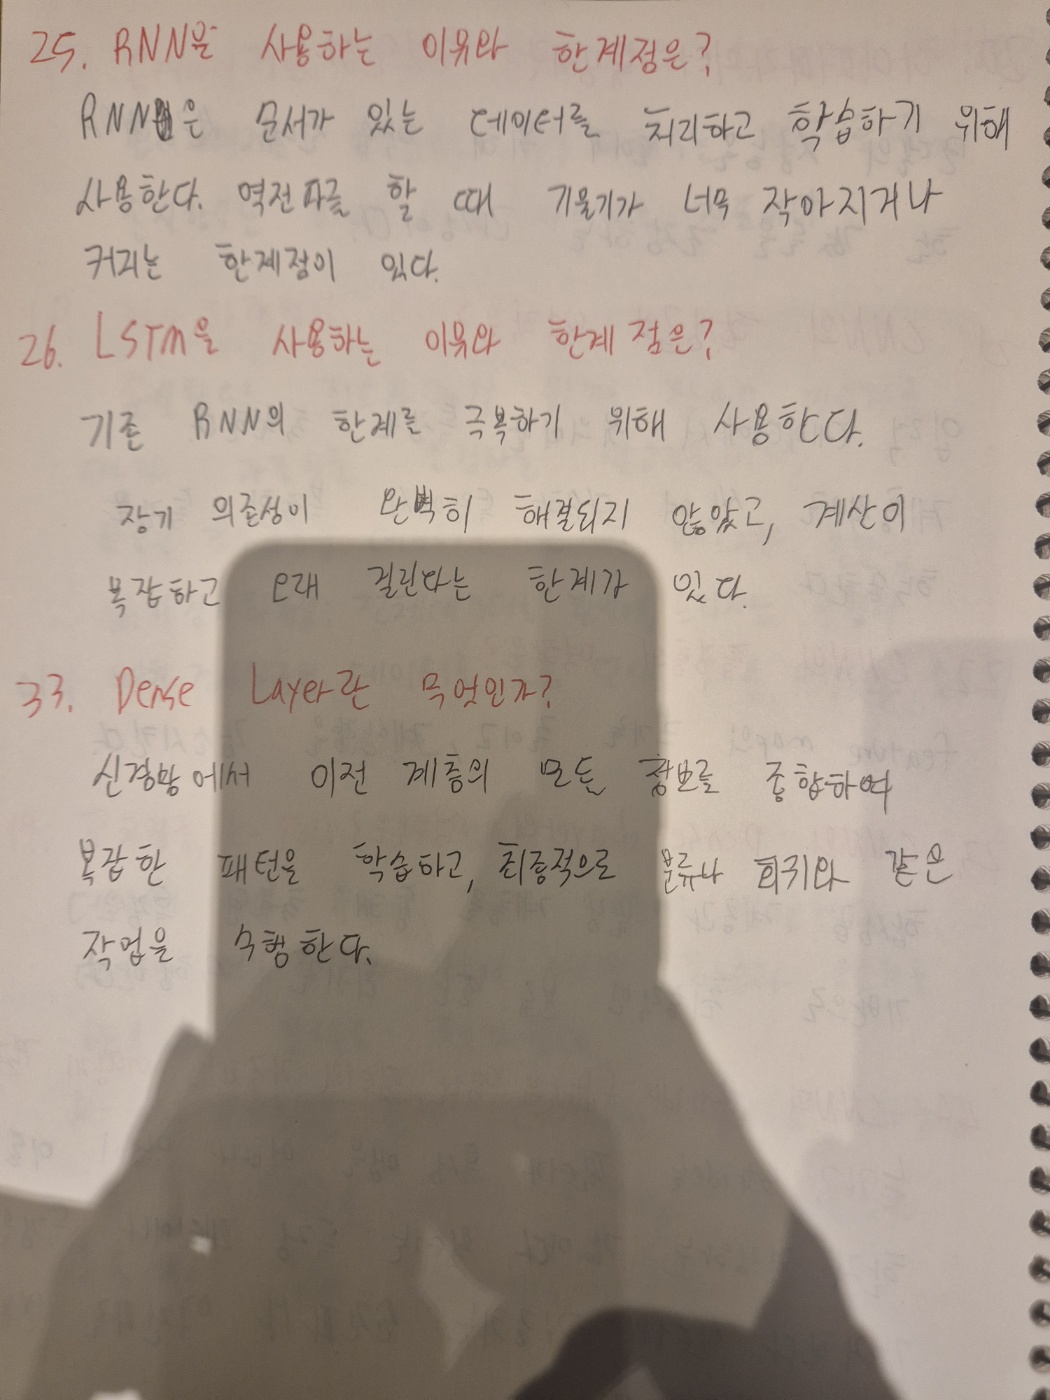 25. RNN을 사용하는 이유와 한계점은?
RNN은 문서가 있는 데이터를 처리하고 학습하기 위해
사용한다. 역전파를 할 때 기울기가 너무 작아지거나
커지는 한계점이 있다.
26. LSTM을 사용하는 이유와 한계점은?
기존 RNN의 한계를 극복하기 위해 사용한다.
장기 의존성이 완벽히 해결되지 않았고, 계산이
복잡하고 오래 걸린다는 한계가 있다.
33. Dense Layer란 무엇인가?
신경망에서 이전 계층의 모든 정보를 종합하여
복잡한 패턴을 학습하고, 최종적으로 분류나 회귀와 같은
작업을 수행한다.